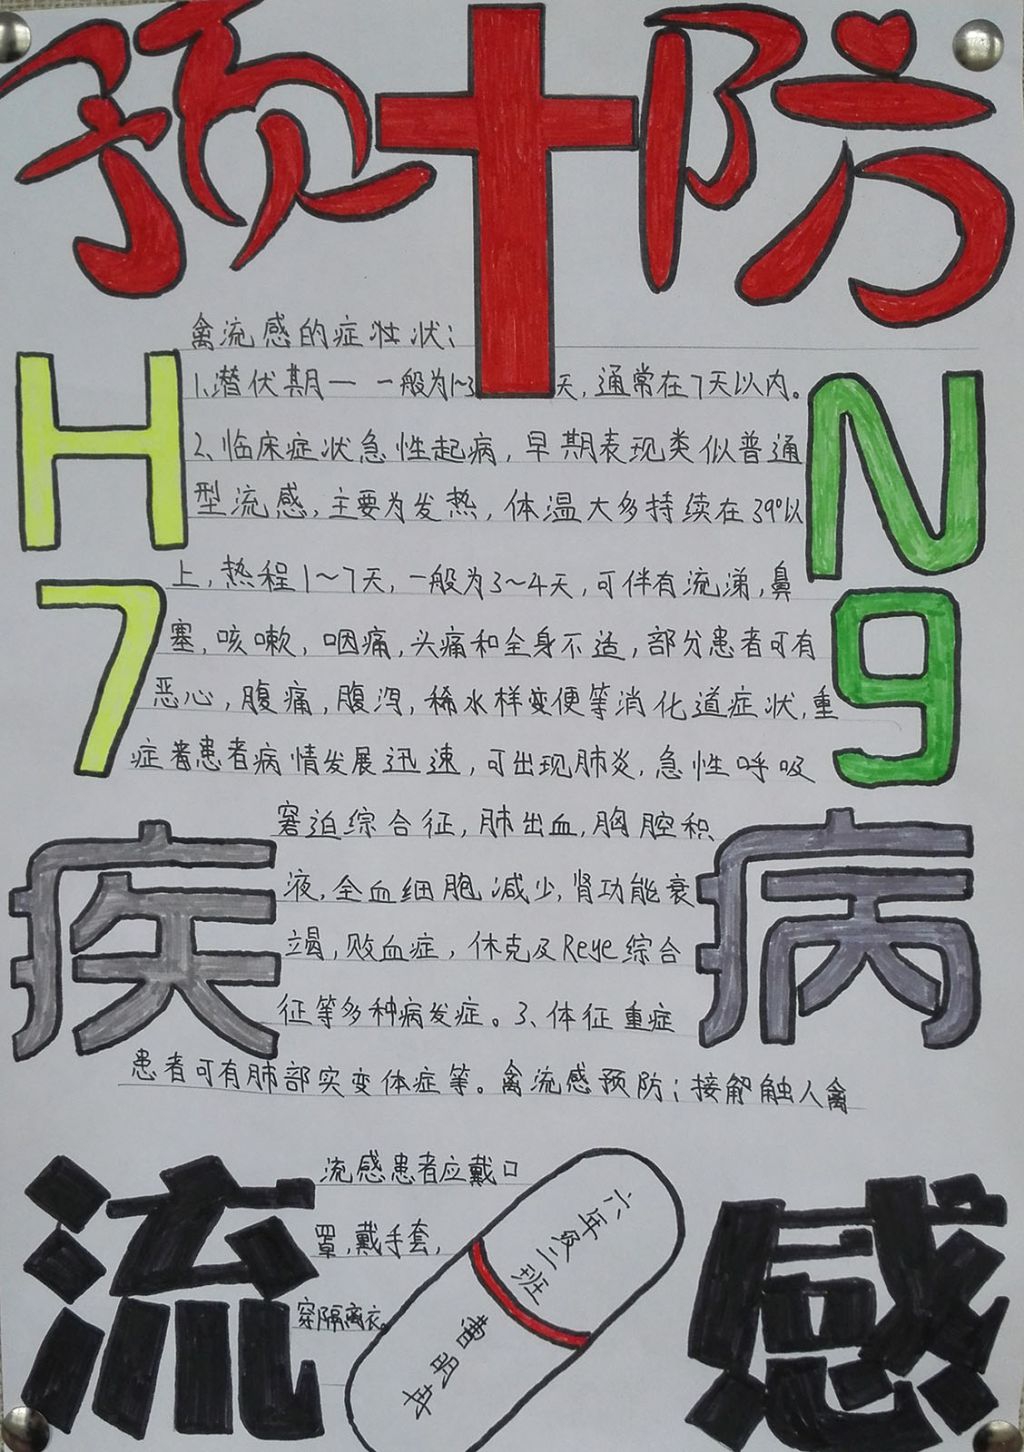 预防
禽流感的症壮状：
1、潜伏期一 一般为1~3天，通常在7天以内。
H
N
2、临床症状急性起病，早期表现类似普通
型流感，主要为发热，体温大多持续在39°以
上，热程1～7天，一般为3～4天，可伴有流涕，鼻
7
9
塞，咳嗽，咽痛，头痛和全身不适，部分患者可有
恶心，腹痛，腹泻，稀水样变便等消化道症状，重
症患者病情发展迅速，可出现肺炎，急性呼吸
疾
病
窘迫综合征，肺出血，胸腔积
液，全血细胞减少，肾功能衰
竭，败血症，休克及Reye综合
征等多种病发症。3、体征重症
患者可有肺部实变体症等。禽流感预防：接触人禽
流
感
流感患者应戴口
罩，戴手套，
穿隔离衣。
六年级二班